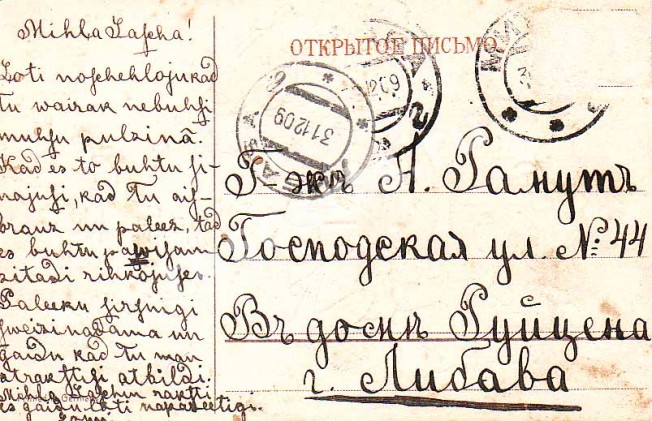 Mihļa Lapha!
Loti noschehloju kad
Tu wairak nebuhsi
muhsu pulzinā.
Kad es to buhtu si-
najusi, kad Tu ais-
brauz un paleez, tad
es buhtu pawisam
zitadi rihkojuses.
Paleeku sirsnigi
sweizinadama un
gaidu kad Tu man
atrakstisi atbildi.
Mihļa Laphiņ raksti
es gaidu loti nepazeetigi.
ОТКРЫТОЕ ПИСЬМО.
311209
Г-жѣ Л. Рамутъ
Господская ул. № 44
Въ домѣ Руйцена
г. Либава